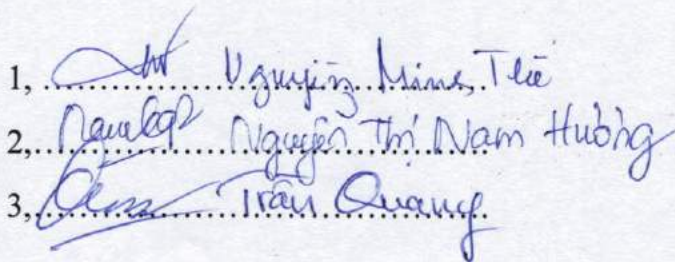 1, Nguyễn Minh Thế
2, Nguyễn Thị Nam Hường
3, Trần Quang